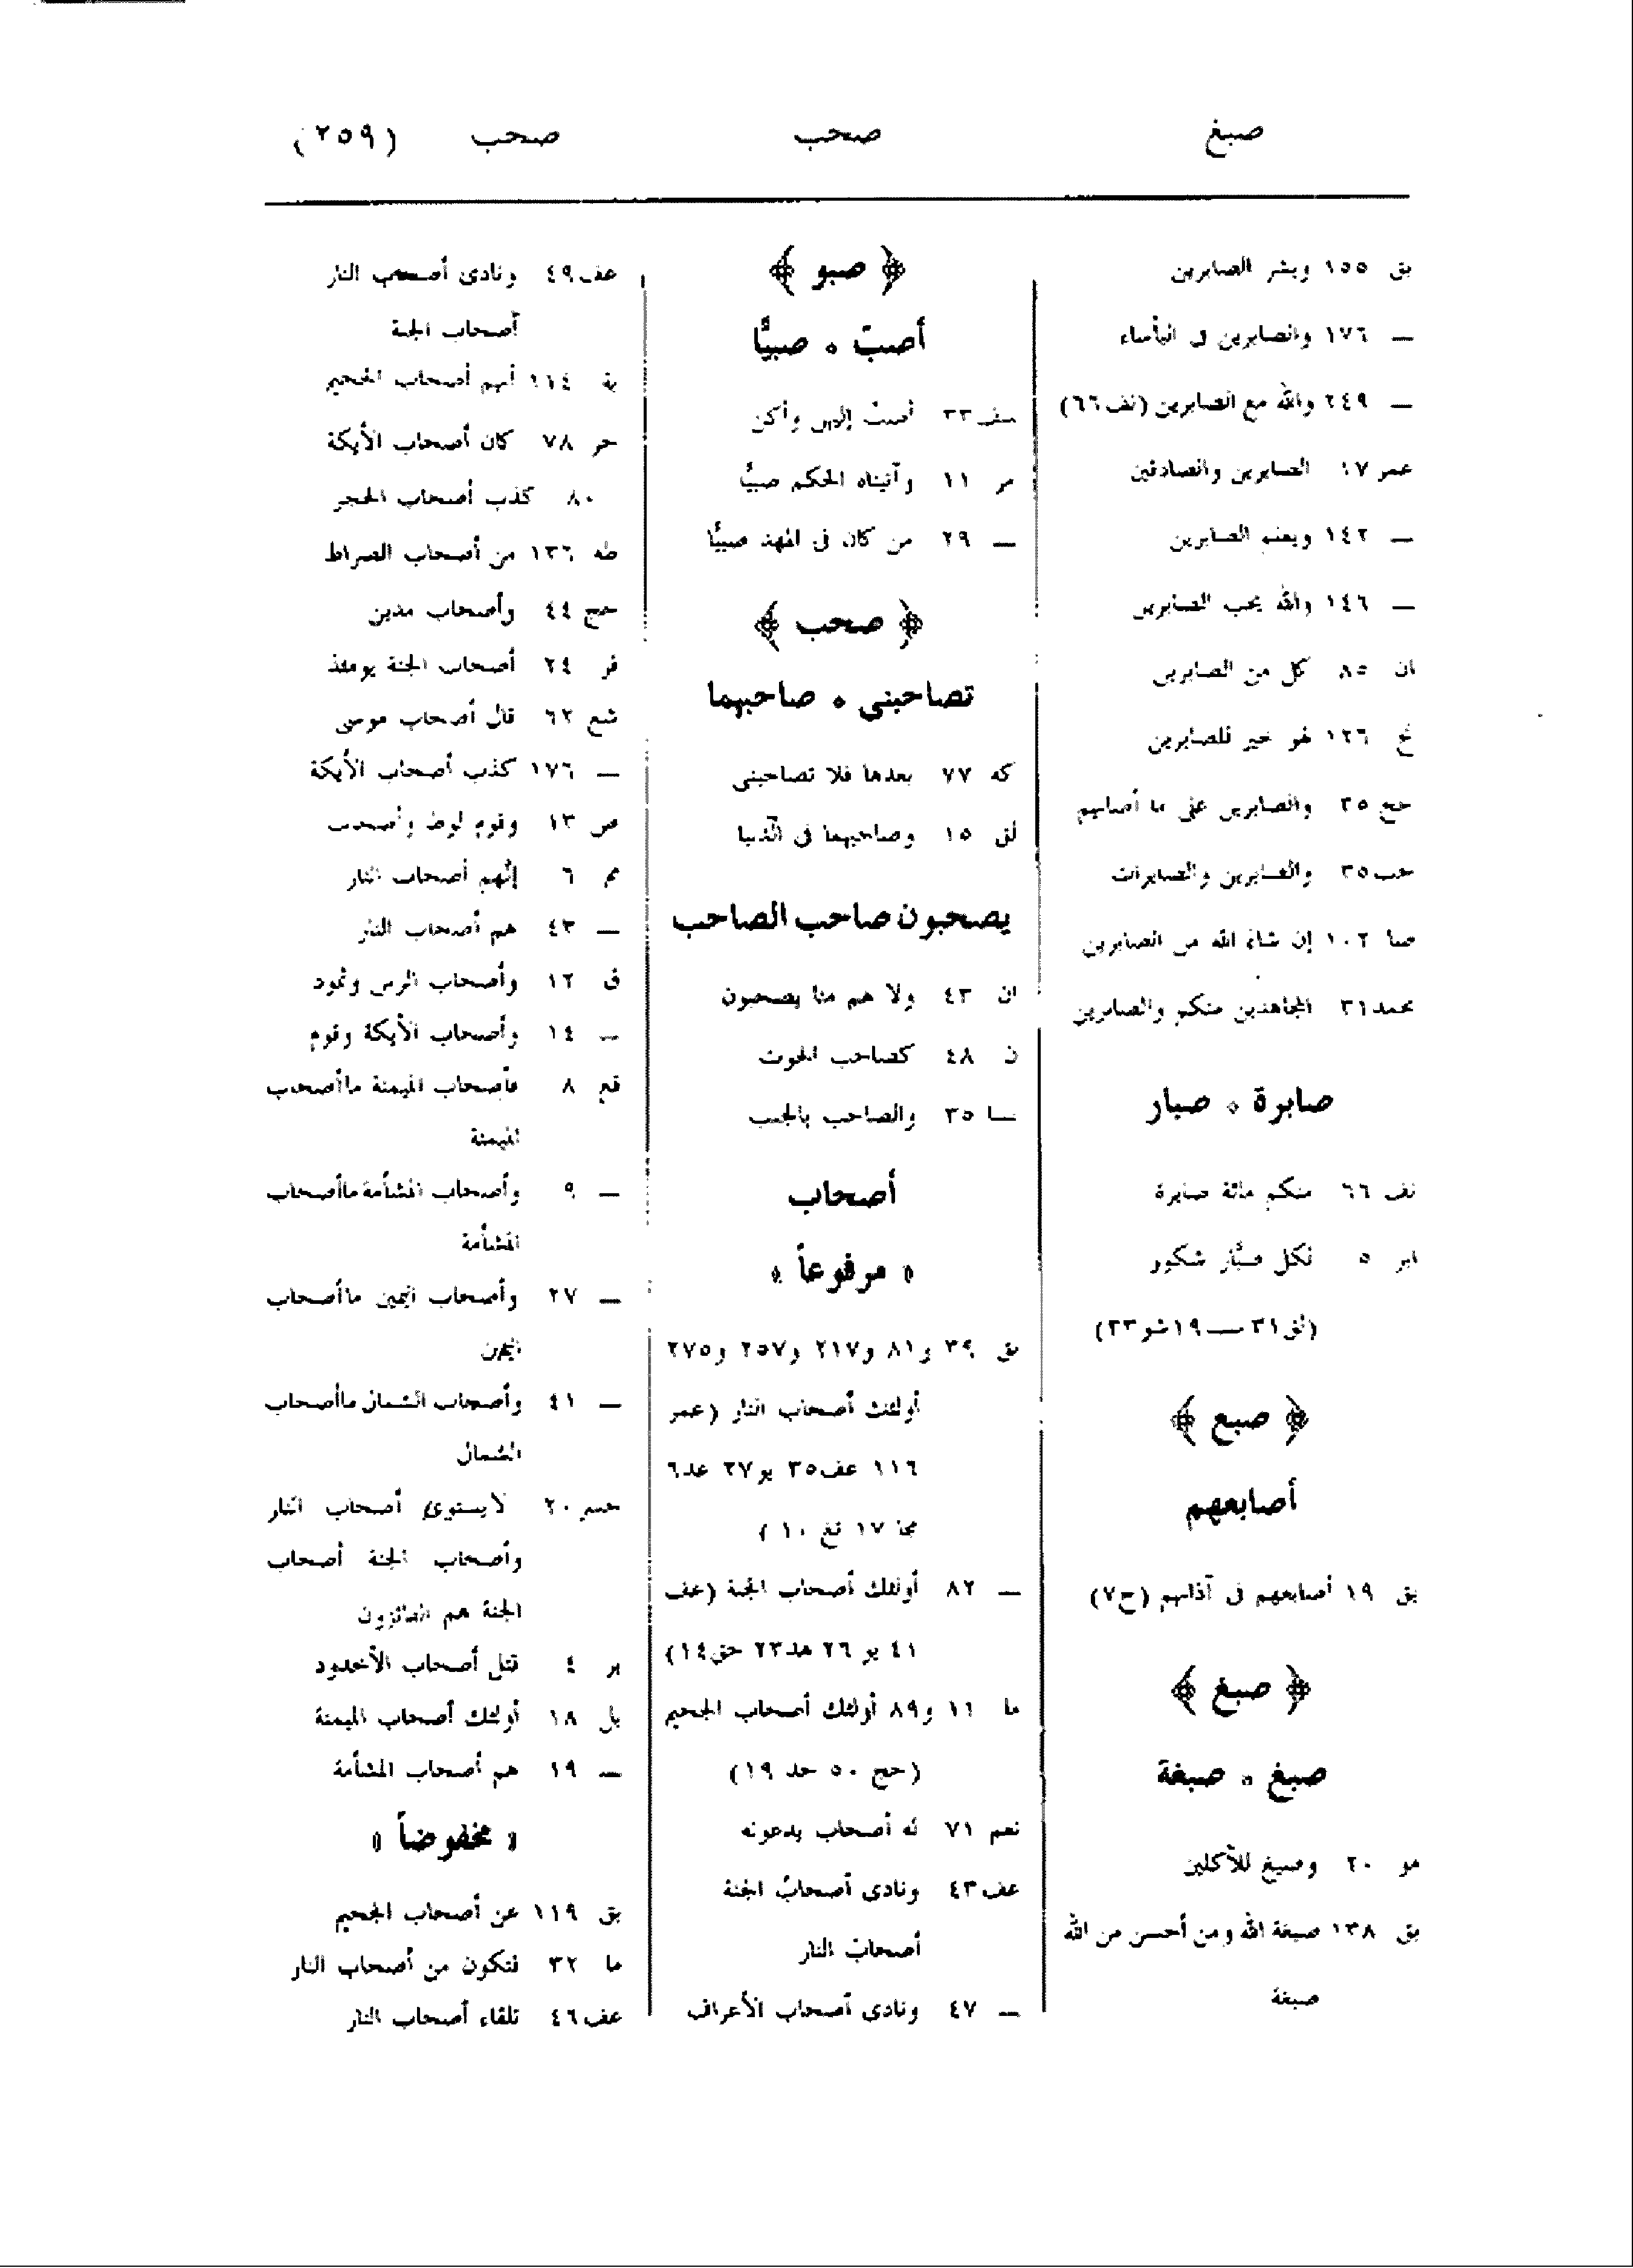 صبغ
صحب
صحب
(٢٥٩)
بق ١٥٥ وبشر الصابرين
— ١٧٦ والصابرين فى البأساء
— ٢٤٩ والله مع الصابرين (نف٦٦)
عمر ١٧ الصابرين والصادقين
— ١٤٢ ويعلم الصابرين
— ١٤٦ والله يحب الصابرين
ان ٨٥ كل من الصابرين
نح ١٢٦ لهو خير للصابرين
حج ٣٥ والصابرين على ما أصابهم
حب ٣٥ والصابرين والصابرات
صا ١٠٢ إن شاء الله من الصابرين
محمد ٣١ المجاهدين منكم والصابرين
صابرة ٭ صبار
نف ٦٦ منكم مائة صابرة
ابر ٥ لكل صبَّار شكور
(لق ٣١ — ١٩ شو ٣٣)
﴿ صبع ﴾
أصابعهم
بق ١٩ أصابعهم فى آذانهم (ح٧)
﴿ صبغ ﴾
صبغ ٭ صبغة
مو ٢٠ وصبغ للآكلين
بق ١٣٨ صبغة الله ومن أحسن من الله
صبغة
﴿ صبو ﴾
أصبُ ٭ صبيًّا
سف ٣٣ أصبُ إليهن وأكن
مر ١١ وآتيناه الحكم صبيًّا
— ٢٩ من كان فى المهد صبيًّا
﴿ صحب ﴾
تصاحبنى ٭ صاحبهما
كه ٧٧ بعدها فلا تصاحبنى
لق ١٥ وصاحبهما فى الدنيا
يصحبون صاحب الصاحب
ان ٤٣ ولا هم منا يصحبون
ن ٤٨ كصاحب الحوت
نسا ٣٥ والصاحب بالجنب
أصحاب
« مرفوعاً »
بق ٣٩ و٨١ و٢١٧ و٢٥٧ و٢٧٥
أولئك أصحاب النار (عمر
١١٦ عف٣٥ يو٢٧ عد٦
مجا ١٧ تغ ١٠)
— ٨٢ أولئك أصحاب الجنة (عف
٤١ يو ٢٦ هد٢٣ حق١٤)
ما ١١ و٨٩ أولئك أصحاب الجحيم
(حج ٥٠ حد ١٩)
نعم ٧١ له أصحاب يدعونه
عف ٤٣ ونادى أصحابُ الجنة
أصحابَ النار
— ٤٧ ونادى أصحاب الأعراف
عف ٤٩ ونادى أصحاب النار
أصحاب الجنة
بة ١١٤ أنهم أصحاب الجحيم
حر ٧٨ كان أصحاب الأيكة
٨٠ كذب أصحاب الحجر
طه ١٣٦ من أصحاب الصراط
حج ٤٤ وأصحاب مدين
فر ٢٤ أصحاب الجنة يومئذ
شع ٦٢ قال أصحاب موسى
— ١٧٦ كذب أصحاب الأيكة
ص ١٣ وقوم لوط وأصحاب
مم ٦ إنَّهم أصحاب النار
— ٤٣ هم أصحاب النار
ق ١٢ وأصحاب الرس وثمود
— ١٤ وأصحاب الأيكة وقوم
قع ٨ فأصحاب الميمنة ماأصحاب
الميمنة
— ٩ وأصحاب المشأمة ماأصحاب
المشأمة
— ٢٧ وأصحاب اليمين ماأصحاب
اليمين
— ٤١ وأصحاب الشمال ماأصحاب
الشمال
حسر ٢٠ لايستوى أصحاب النار
وأصحاب الجنة أصحاب
الجنة هم الفائزون
بر ٤ قتل أصحاب الأخدود
بل ١٨ أولئك أصحاب الميمنة
— ١٩ هم أصحاب المشأمة
« مخفوضاً »
بق ١١٩ عن أصحاب الجحيم
ما ٣٢ فتكون من أصحاب النار
عف ٤٦ تلقاء أصحاب النار